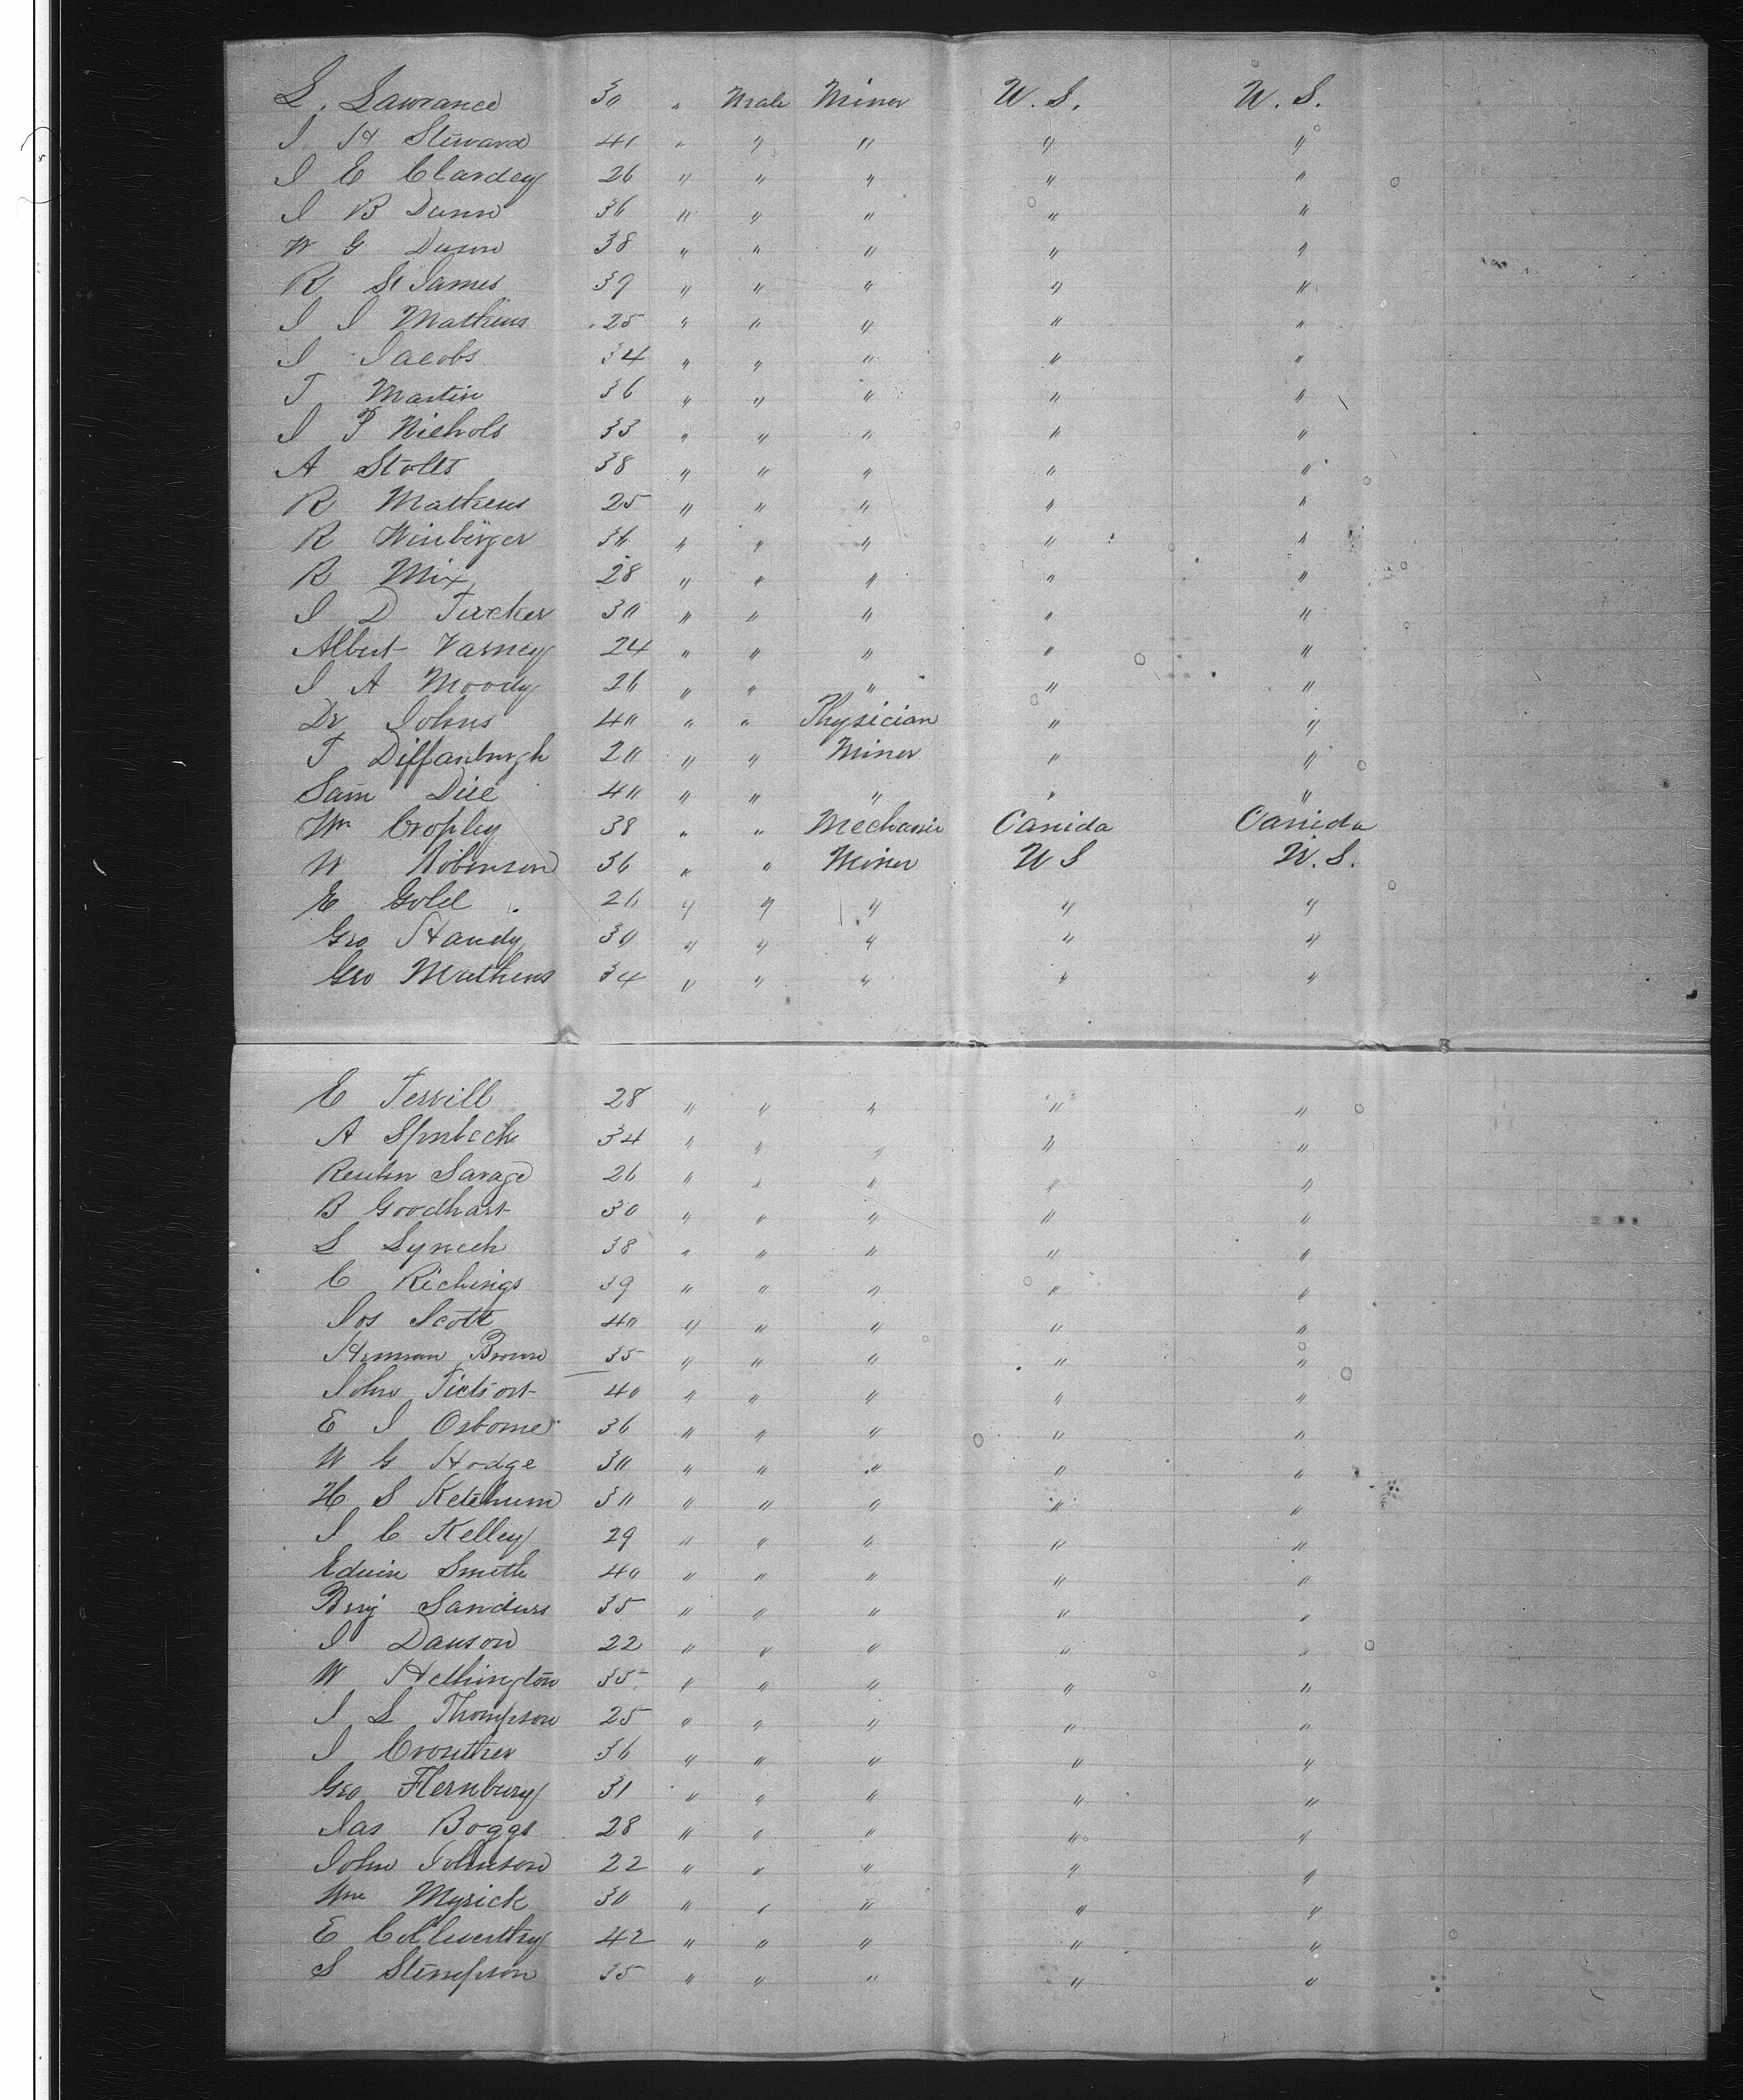 L. Lawrance 30 " Male Miner U. S. U. S.
J H Steward 41 " " " " "
J E Clardey 26 " " " " "
J B Dunn 36 " " " " "
W G Dunn 38 " " " " "
R St James 39 " " " " "
J J Mathews 25 " " " " "
J Jacobs 34 " " " " "
T Martin 36 " " " " "
J P Nichols 33 " " " " "
A Stolts 38 " " " " "
R Mathews 25 " " " " "
R Winberger 36 " " " " "
R Mix 28 " " " " "
J D Tucker 30 " " " " "
Albert Varney 24 " " " " "
J A Moody 26 " " " " "
Dr Johns 40 " " Physician " "
T Diffanburgh 20 " " Miner " "
Sam Dice 40 " " " " "
Wm Cropley 38 " " Mechanic Canida Canida
W Robinson 36 " " Miner U S U. S.
E Gold 26 " " " " "
Geo Handy 30 " " " " "
Geo Mathews 34 " " " " "
E Terrill 28 " " " " "
A 34 " " " " "
Reuben Savage 26 " " " " "
B Goodhart 30 " " " " "
L Lynech 38 " " " " "
C Richings 39 " " " " "
Jos Scott 40 " " " " "
Herman Brown 35 " " " " "
John Tietsort 40 " " " " "
E J Osborne 36 " " " " "
W G Hodge 30 " " " " "
H S Ketchum 30 " " " " "
J C Kelley 29 " " " " "
Edwin Smith 40 " " " " "
Benj Sanders 35 " " " " "
J Dawson 22 " " " " "
W Hethington 35 " " " " "
J L Thompson 25 " " " " "
J Crowther 36 " " " " "
Geo Flernbury 31 " " " " "
Jas Boggs 28 " " " " "
John Johnson 22 " " " " "
Wm Myrick 30 " " " " "
E 42 " " " " "
S Stimpson 35 " " " " "